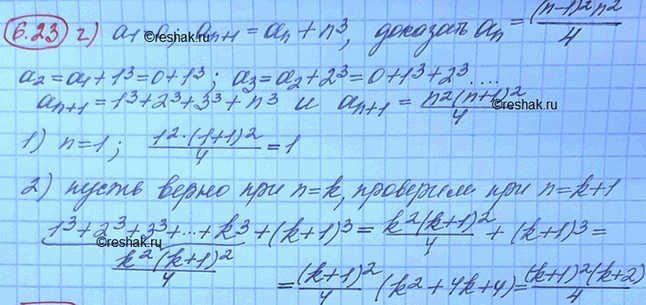 6.23 г) a₁ = 0; aₙ₊₁ = aₙ + n³, доказать aₙ = (n-1)²n²/4
reshak.ru
a₂ = a₁ + 1³ = 0 + 1³; a₃ = a₂ + 2³ = 0 + 1³ + 2³....
aₙ₊₁ = 1³ + 2³ + 3³ + n³ и aₙ₊₁ = n²(n+1)²/4
reshak.ru
1) n=1; 1²·(1+1)²/4 = 1
2) пусть верно при n=k, проверим при n=k+1
1³ + 2³ + 3³ + ... + k³ + (k+1)³ = k²(k+1)²/4 + (k+1)³ =
reshak.ru
k²(k+1)²/4
= (k+1)²/4 (k² + 4k + 4) = (k+1)²(k+2)/4